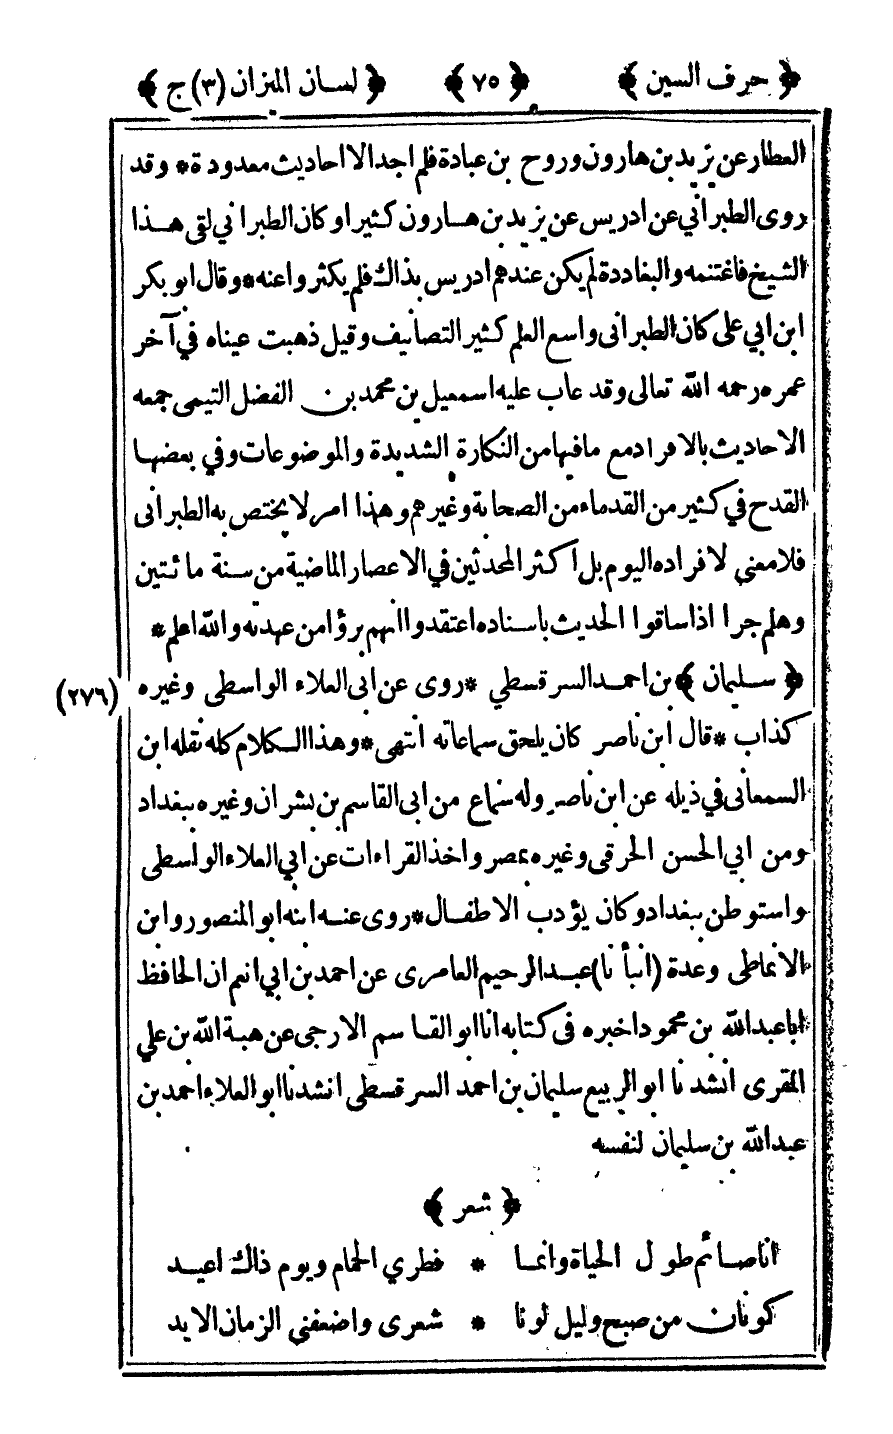 ﴿ حرف السين ﴾ ﴿ ٧٥ ﴾ ﴿ لسان الميزان (٣) ج ﴾
العطار عن يزيد بن هارون وروح بن عبادة فلم اجد الا احاديث معدودة * وقد
روى الطبراني عن ادريس عن يزيد بن هارون كثيرا وكان الطبراني لقى هذا
الشيخ فاغتنمه والبغاددة لم يكن عندهم ادريس بذاك فلم يكثروا عنه * وقال ابو بكر
ابن ابي على كان الطبرانى واسع العلم كثير التصانيف وقيل ذهبت عيناه في آخر
عمره رحمه الله تعالى وقد عاب عليه اسمعيل بن محمد بن الفضل التيمى جمعه
الاحاديث بالافراد مع ما فيها من النكارة الشديدة والموضوعات وفي بعضها
القدح في كثير من القدماء من الصحابة وغيرهم وهذا امر لا يختص به الطبرانى
فلا معنى لافراده اليوم بل اكثر المحدثين في الاعصار الماضية من سنة مائتين
وهلم جرا اذا ساقوا الحديث باسناده اعتقدوا انهم برؤا من عهدته والله اعلم *
﴿ سليمان ﴾ بن احمد السرقسطي * روى عن ابى العلاء الواسطى وغيره (٢٧٦)
كذاب * قال ابن ناصر كان يلحق سماعاته انتهى * وهذا الكلام كله نقله ابن
السمعانى في ذيله عن ابن ناصر وله سماع من ابى القاسم بن بشران وغيره ببغداد
ومن ابي الحسن الحرقى وغيره بمصر واخذ القراءات عن ابي العلاء الواسطى
واستوطن ببغداد وكان يؤدب الاطفال * روى عنه ابنه ابو المنصور وابن
الانماطى وعدة (انبأنا) عبد الرحيم العامرى عن احمد بن ابي انم ان الحافظ
ابا عبد الله بن محمود اخبره فى كتابه انا ابو القاسم الارجى عن هبة الله بن علي
المقرى انشدنا ابو الربيع سليمان بن احمد السرقسطى انشدنا ابو العلاء احمد بن
عبد الله بن سليمان لنفسه
﴿ شعر ﴾
انا صائم طول الحياة وانما * فطري الحمام ويوم ذاك اعيد
كونان من صبح وليل لونا * شعرى واضعفني الزمان الايد